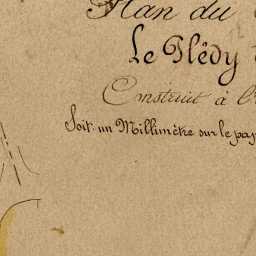 Plan du
Le Plédy
Construit à l
Soit: un Millimètre sur le pap